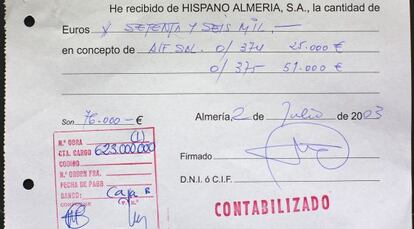 He recibido de HISPANO ALMERIA, S.A., la cantidad
Euros SETENTA Y SEIS MIL.—
en concepto de O/ 374 25.000 €
O/ 375 51.000 €
Son 76.000 — € Almería, 2 de Julio de 2003
N.º OBRA (1)
CTA. CARGO 623.000000
CODIGO
N.º ORDEN FRA.
FECHA DE PAGO
BANCO: Caja B
Firmado
D.N.I. ó C.I.F.
CONTABILIZADO